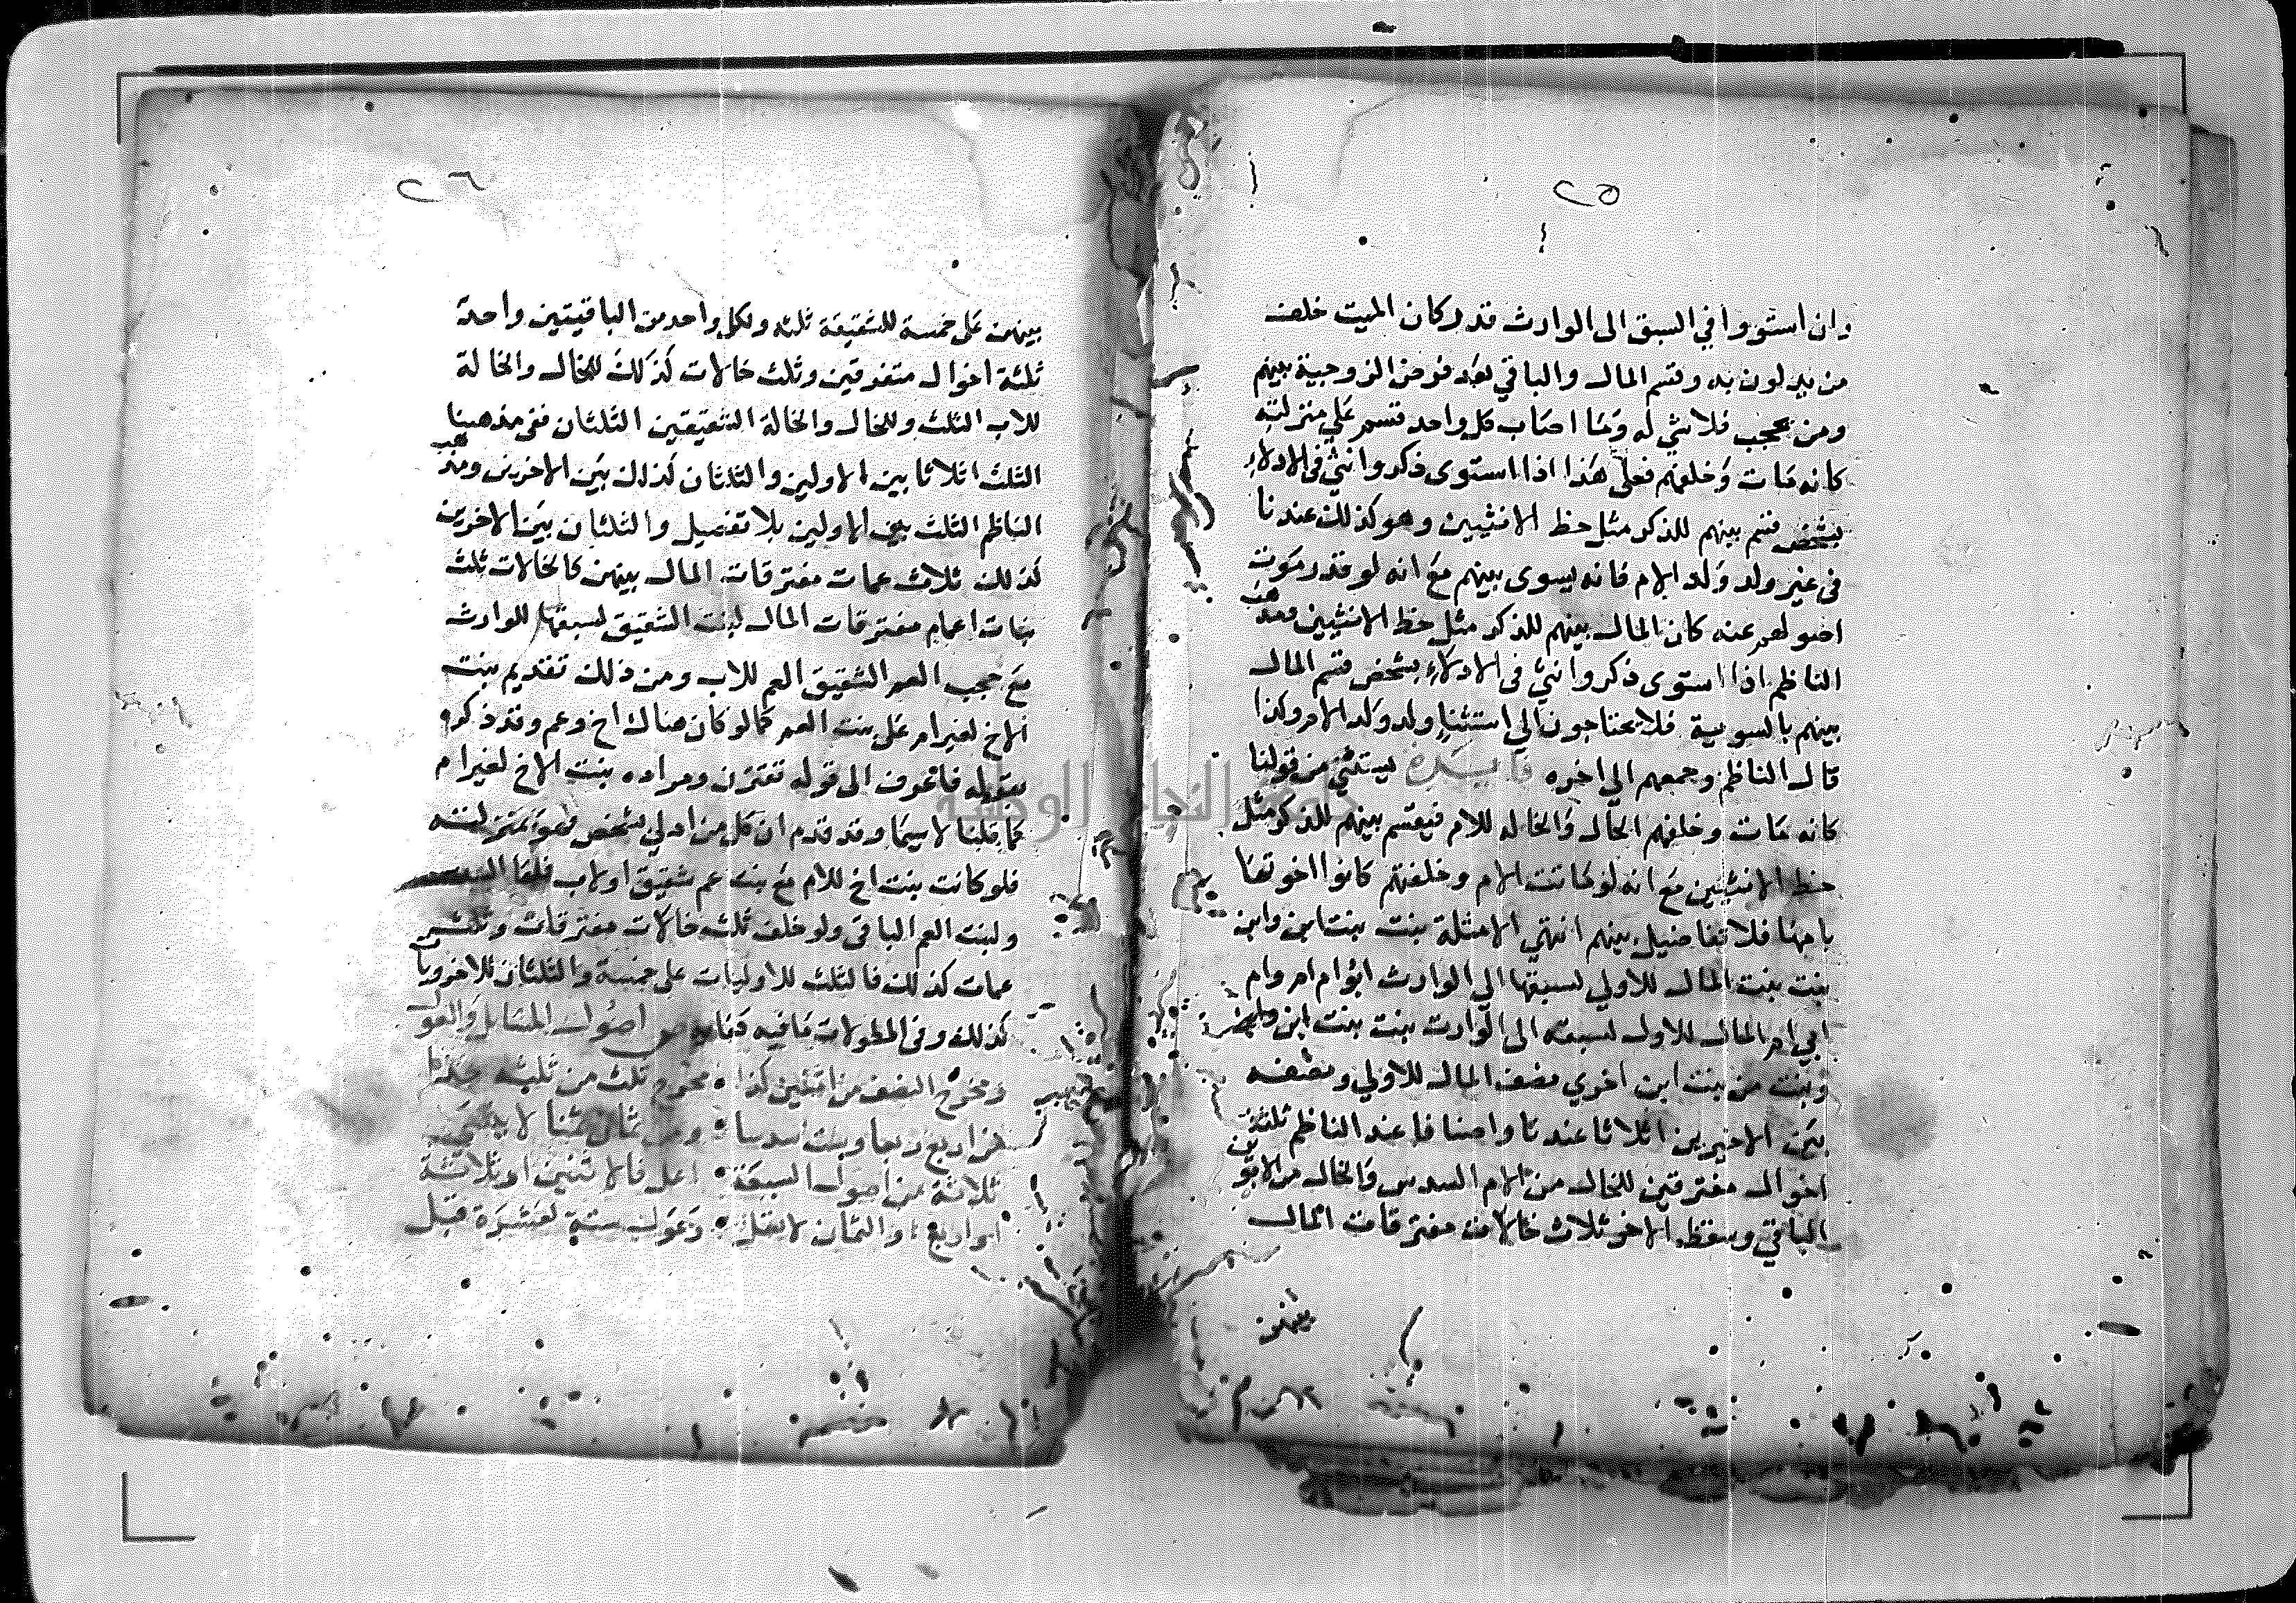 ٢٥
وان استووا في السبق الى الوارث قدر كان الميت خلف
من يدلون به وقسم المال والباقي بعد فرض الزوجية بينهم
ومن يحجب فلا شي له وما اصاب كل واحد قسم على منزلته
كانه مات وخلفهم فعلى هذا اذا استوى ذكر وانثى في الادلاء
بشخص قسم بينهم للذكر مثل حظ الانثيين وهو كذلك عندنا
في غير ولد ولد الام فانه يسوى بينهم مع انه لو قدر موت
اصولهم عنه كان المال بينهم للذكر مثل حظ الانثيين ومذهب
الناظم اذا استوى ذكر وانثى في الادلاء بشخص قسم المال
بينهم بالسوية فلا يحتاجون الي استثناء ولد ولد الام وكذا
قال الناظم وجمعهم الى اخره فايدة يستثنى من قولنا
كانه مات وخلفهم الخال والخاله للام فيقسم بينهم للذكر مثل
حظ الانثيين مع انه لو كانت الام وخلفتهم كانوا اخوتها
بامها فلا تفاضل بينهم انتهى الامثلة بنت بنت ابن وابن
بنت بنت المال للاولي لسبقها الى الوارث ابوام ام وام
ابي ام المال للاول لسبقه الى الوارث بنت بنت ابن
وبنت من بنت ابن اخري نصف المال للاولي ونصفه
بين الاخيرين اثلاثا عندنا وانصافا عند الناظم ثلثة
اخوال مفترقين للخال من الام السدس والخال من الابوين
الباقي وسقط الاخر ثلاث خالات مفترقات المال
بينهن
٢٦
بينهن على خمسة للشقيقة ثلثه ولكل واحد من الباقيتين واحدة
ثلثة اخوال متفرقين وثلث خالات كذلك للخال والخالة
للاب الثلث وللخال والخالة الشقيقين الثلثان ففي مذهبنا
الثلث اثلاثا بين الاولين والثلثان كذلك بين الاخرين ومذهب
الناظم الثلث بين الاولين بلا تفضيل والثلثان بين الاخرين
كذلك ثلاث عمات مفترقات المال بينهن كالخالات ثلث
بنات اعمام مفترقات المال لبنت الشقيق لسبقها للوارث
مع حجب العم الشقيق العم للاب ومن ذلك تقديم بنت
الاخ لغير ام على بنت العم كما لو كان هناك اخ وعم وقد ذكره
بقوله فاعرف الى قوله تقترن ومراده بنت الاخ لغير ام
كما قلنا لا سيما وقد قدم ان كل من ادلي بشخص فهو بمنزلته
فلو كانت بنت اخ للام مع بنت عم شقيق او لاب فلها السدس
ولبنت العم الباقي ولو خلف ثلثه خالات مفترقات وثلث
عمات كذلك فالثلث للاوليات على خمسة والثلثان للاخرويات
كذلك وفي المطولات ما فيه اصول المسايل والعول
ومخرج النصف من اثنين كذا مخرج ثلث من ثلثه هكذا
من اربع ربعا وست سدسا
ثلاثة من اصول السبعة اعل فالاثنين او ثلاثة
او اربع والثمان لا تقل وعول ستة لعشرة قبل